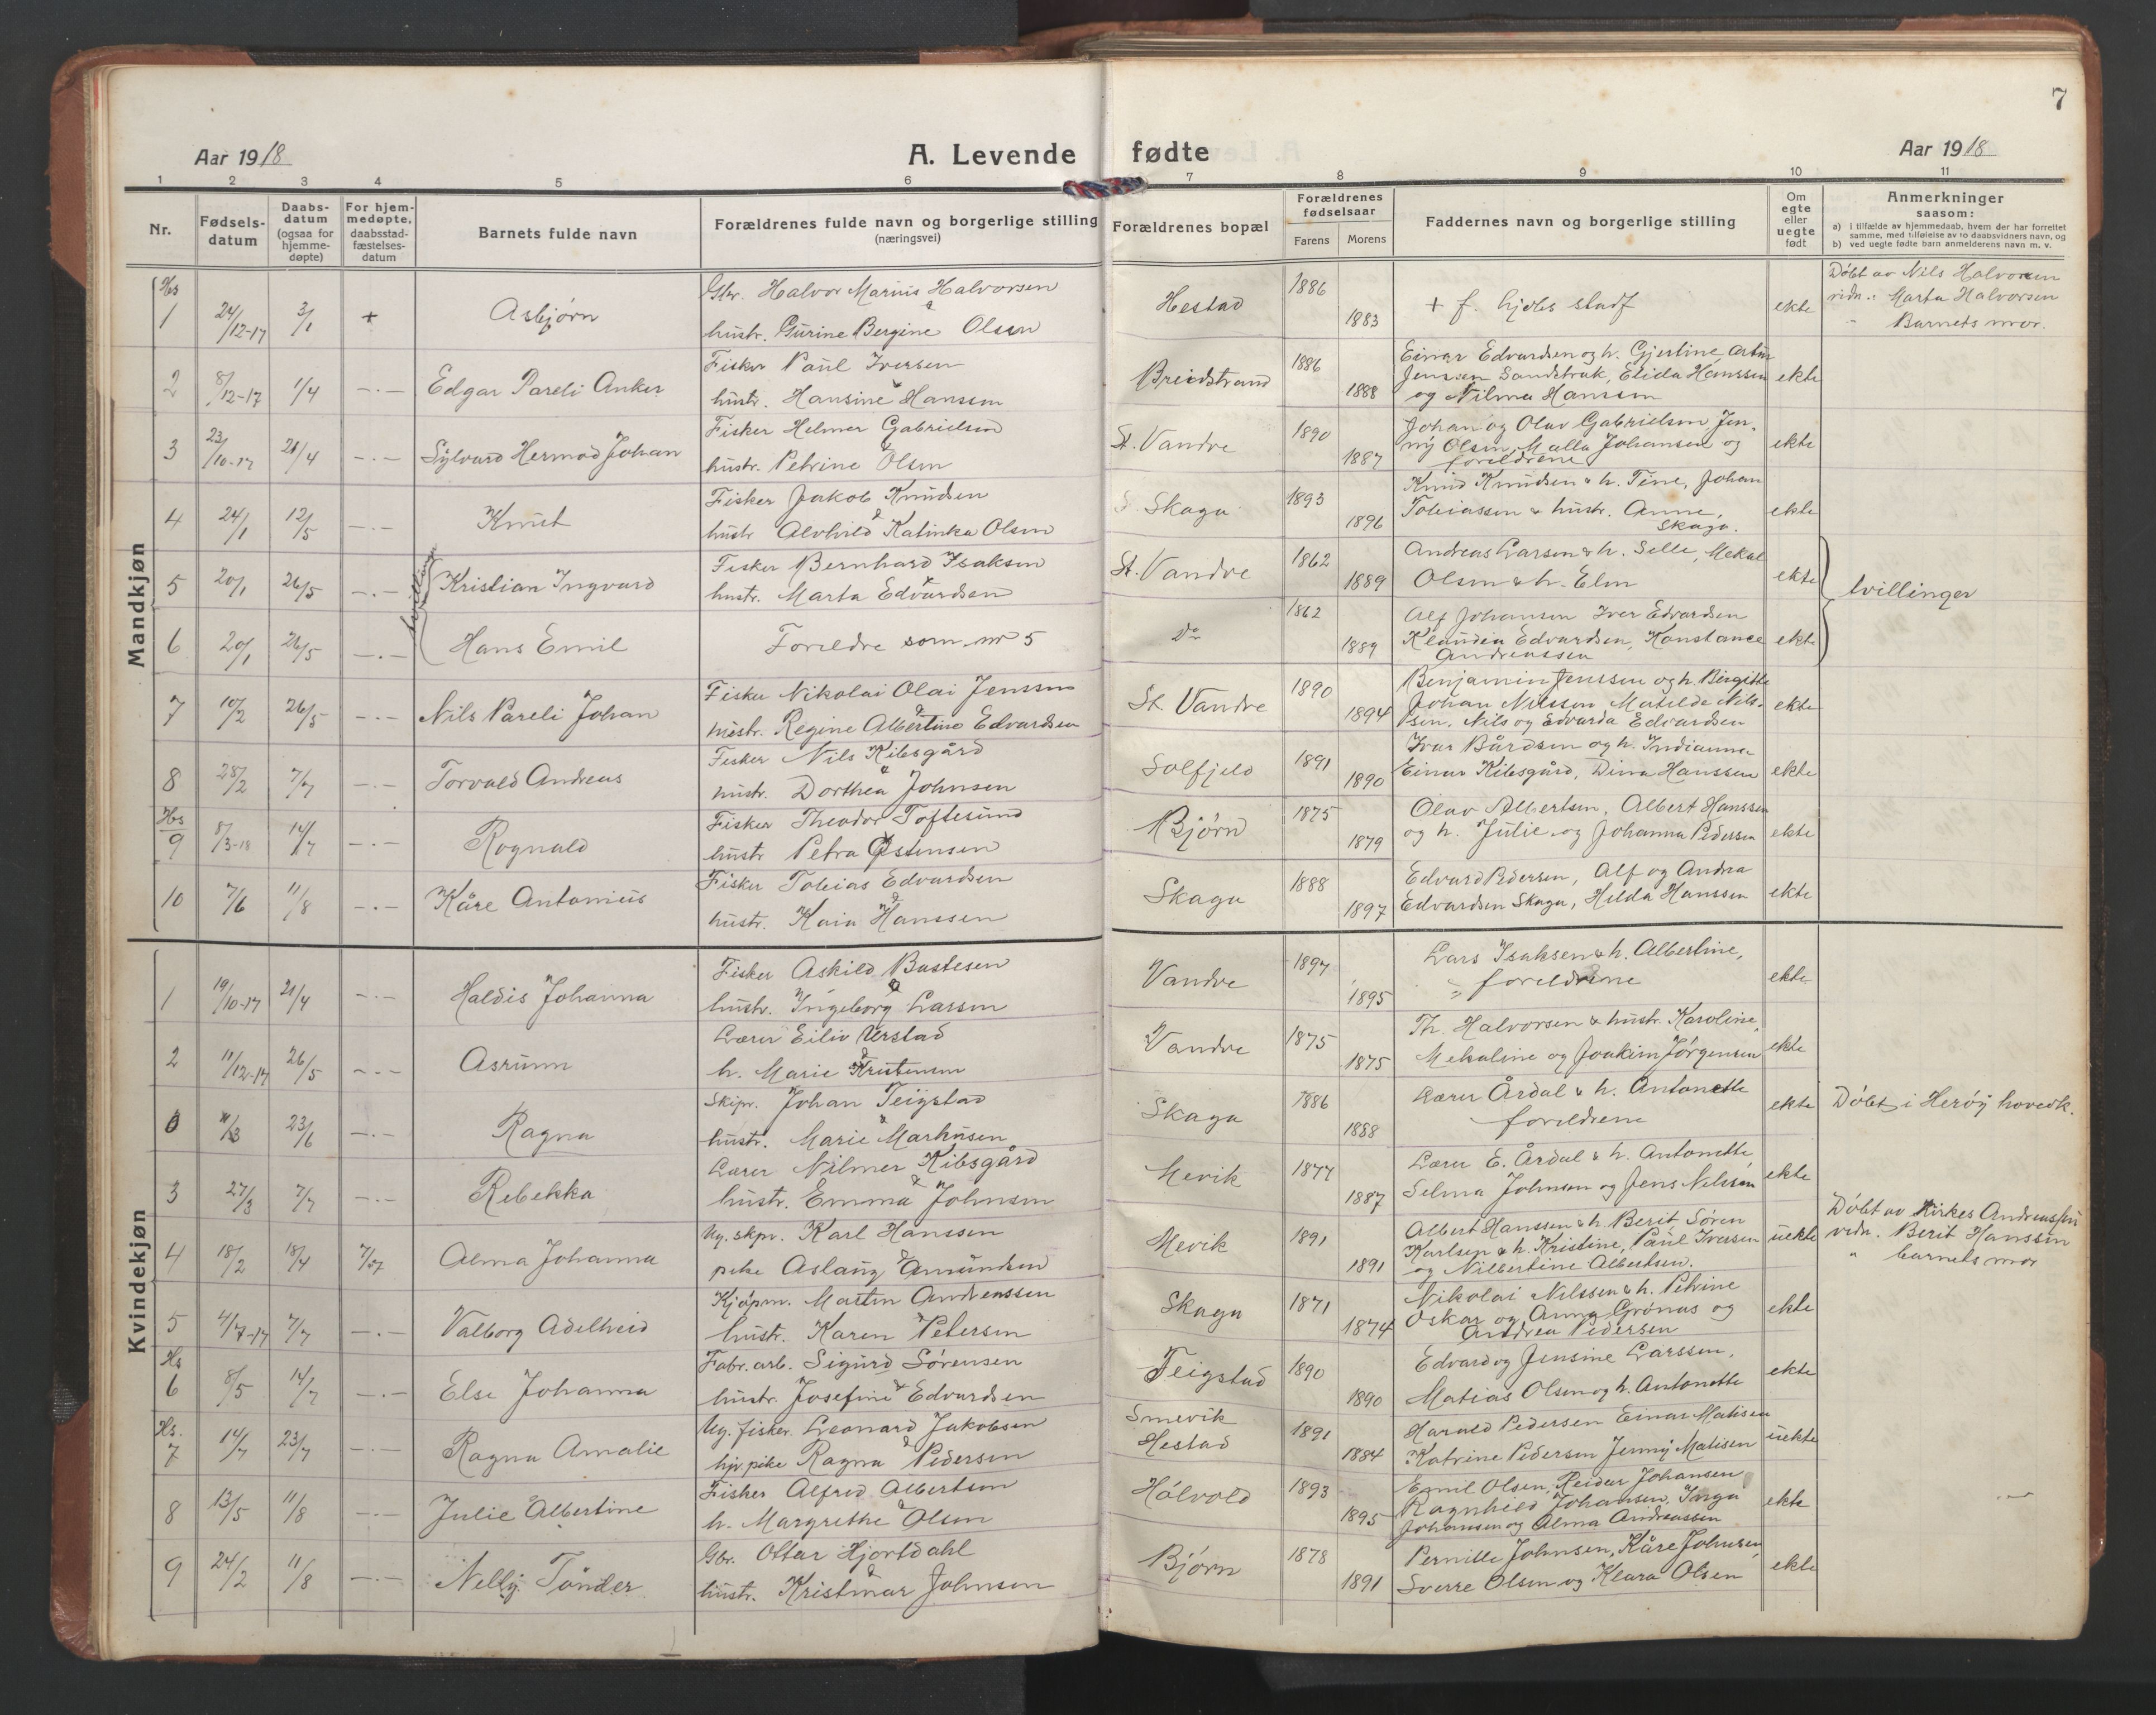 7
Aar 1918
A. Levende fødte
Aar 1918
1 2 3 4 5 6 7 8 9 10 11
Nr.
Fødselsdatum
Daabsdatum (ogsaa for hjemmedøpte)
For hjemmedøpte, daabsstadfæstelsesdatum
Barnets fulde navn
Forældrenes fulde navn og borgerlige stilling (næringsvei)
Forældrenes bopæl
Forældrenes fødselsaar
Farens Morens
Faddernes navn og borgerlige stilling
Om egte eller uegte født
Anmerkninger
saasom:
a) i tilfælde av hjemmedaab, hvem der har forrettet samme, med tilføielse av to daabsvidners navn, og
b) ved uegte fødte barn anmelderens navn m. v.
Mandkjøn
Hs
1 24/12-17 3/1 + Asbjørn Gbr. Halvor Marius Halvorsen & hustr. Gurine Bergine Olsen Hestad 1886 1883 + f. hjebs stadf ekte Døbt av Nils Halvorsen
vidn.: Marta Halvorsen
" Barnets mor.
2 8/12-17 1/4 -.- Edgar Pareli Anker Fisker Paul Iversen & hustr. Hansine Hanssen Breidstrand 1886 1888 Einar Edvardsen og h. Gjertine, Artur
Jenssen Sandstrak, Elida Hanssen
og Nilma Hanssen ekte
3 23/10-17 21/4 -.- Sylvard Hermod Johan Fisker Helmer Gabrielsen & hustr. Petrine Olsen St. Vandve 1890 1887 Johan og Olav Gabrielsen Jen-
ny Olsen, Malla Johansen og
foreldrene ekte
4 24/1 12/5 -.- Knut Fisker Jakob Knudsen & hustr Alvhild Katinka Olsen S. Skaga 1893 1896 Knud Knudsen & h. Tine, Johan
Tobiassen & hustr. Anne,
Skaga. ekte
tvillinger
5 20/1 26/5 -.- Kristian Ingvard Fisker Bernhard Isaksen & hustr. Marta Edvardsen St. Vandve 1862 1889 Andreas Larsen & h. Selle, Mekal
Olsen & h. Elen ekte
tvillinger
6 20/1 26/5 -.- Hans Emil Foreldre som nr 5 Do 1862 1889 Alf Johansen Iver Edvardsen
Klaudia Edvardsen, Konstance
Andreassen ekte
7 10/2 26/5 -.- Nils Pareli Johan Fisker Nikolai Olai Jenssen & hustr. Regine Albertine Edvardsen St. Vandve 1890 1894 Benjamin Jenssen og h. Birgitte
Johan Nilssen, Matilde Nils-
sen, Nils og Edvarda Edvardsen ekte
8 28/2 7/7 -.- Torvald Andreas Fisker Nils Kibsgård & hustr. Dorthea Johnsen Solfjeld 1891 1890 Ivar Bårdsen og h. Indianna
Einar Kibsgård, Dina Hanssen ekte
Hs
9 8/3-18 14/7 -.- Rognald Fisker Theodor Toftesund & hustr Petra Østensen Bjørn 1875 1879 Olav Albertsen, Albert Hanssen
og h. Julie og Johanna Pedersen ekte
10 7/6 11/8 -.- Kåre Antonius Fisker Tobias Edvardsen & hustr. Kaia Hanssen Skaga 1888 1897 Edvard Pedersen, Alf og Andrea
Edvardsen Skaga, Hilda Hanssen ekte
Kvindekjøn
1 19/10-17 21/4 -.- Haldis Johanna Fisker Askild Bastesen & hustr. Ingeborg Larsen Vandve 1897 1895 Lars Isaksen & h. Albertine,
foreldrene ekte
2 11/12-17 26/5 -.- Asrunn Lærer Eiliv Urstad & h. Marie Kristensen Vandve 1875 1875 Th. Halvorsen & hustr. Karoline,
Mekaline og Joakim Jørgensen ekte
0 23/6 -.- Ragna Skipr. Johan Teigstad & hustr. Marie Markusen Skaga 1886 1888 Lærer Årdal & h. Antonette
foreldrene ekte Døbt i Herøy hovedk.
3 27/3 7/7 -.- Rebekka Lærer Nilmer Kibsgård & hustr. Emma Johnsen Mevik 1877 1887 Lærer E. Årdal & h. Antonette
Selma Johnsen og Jens Nelssen ekte
4 18/2 18/4 7/7 Alma Johanna Ug. skpr. Karl Hanssen & pike Aslaug Amundsen Mevik 1891 1891 Albert Hanssen & h. Berit, Søren
Karlsen & h. Kristine, Paul Iversen
og Nilbertine Albertsen. uekte Døbt av Kirkes Andreassen
vidn. Berit Hanssen
" barnets mor
5 4/7-17 7/7 -.- Valborg Adelheid Kjøpm. Martin Andreassen & hustr. Karen Petersen Skaga 1871 1874 Nikolai Nilssen & h. Petrine
Oskar og Anna Grønås og
Andrea Pedersen ekte
Hs
6 8/5 14/7 -.- Else Johanna Fabr. arb. Sigurd Sørensen & hustr. Josefine Edvardsen Teigstad 1890 1890 Edvard og Jensine Larssen,
Matias Olsen og h. Antonette ekte
Hs.
7 14/7 23/7 -.- Ragna Amalie Ug. fisker Leonard Jakobsen & hjv pike Ragna Pedersen Smevik
Hestad 1891 1884 Harald Pedersen Einar Matisen
Katrine Pedersen Jenny Matisen uekte
8 13/5 11/8 -.- Julie Albertine Fisker Alfred Albertsen & h. Margrethe Olsen Hølvold 1893 1895 Emil Olsen, Reidar Johansen
Ragnhild Johansen, Inga
Johansen og Alma Andreassen ekte
9 24/2 11/8 -.- Nelly Tønder Gbr. Ottar Hjortdahl hustr. Kristmar Johnsen Bjørn 1878 1891 Pernille Johnsen, Kåre Johnsen
Sverre Olsen og Klara Olsen ekte